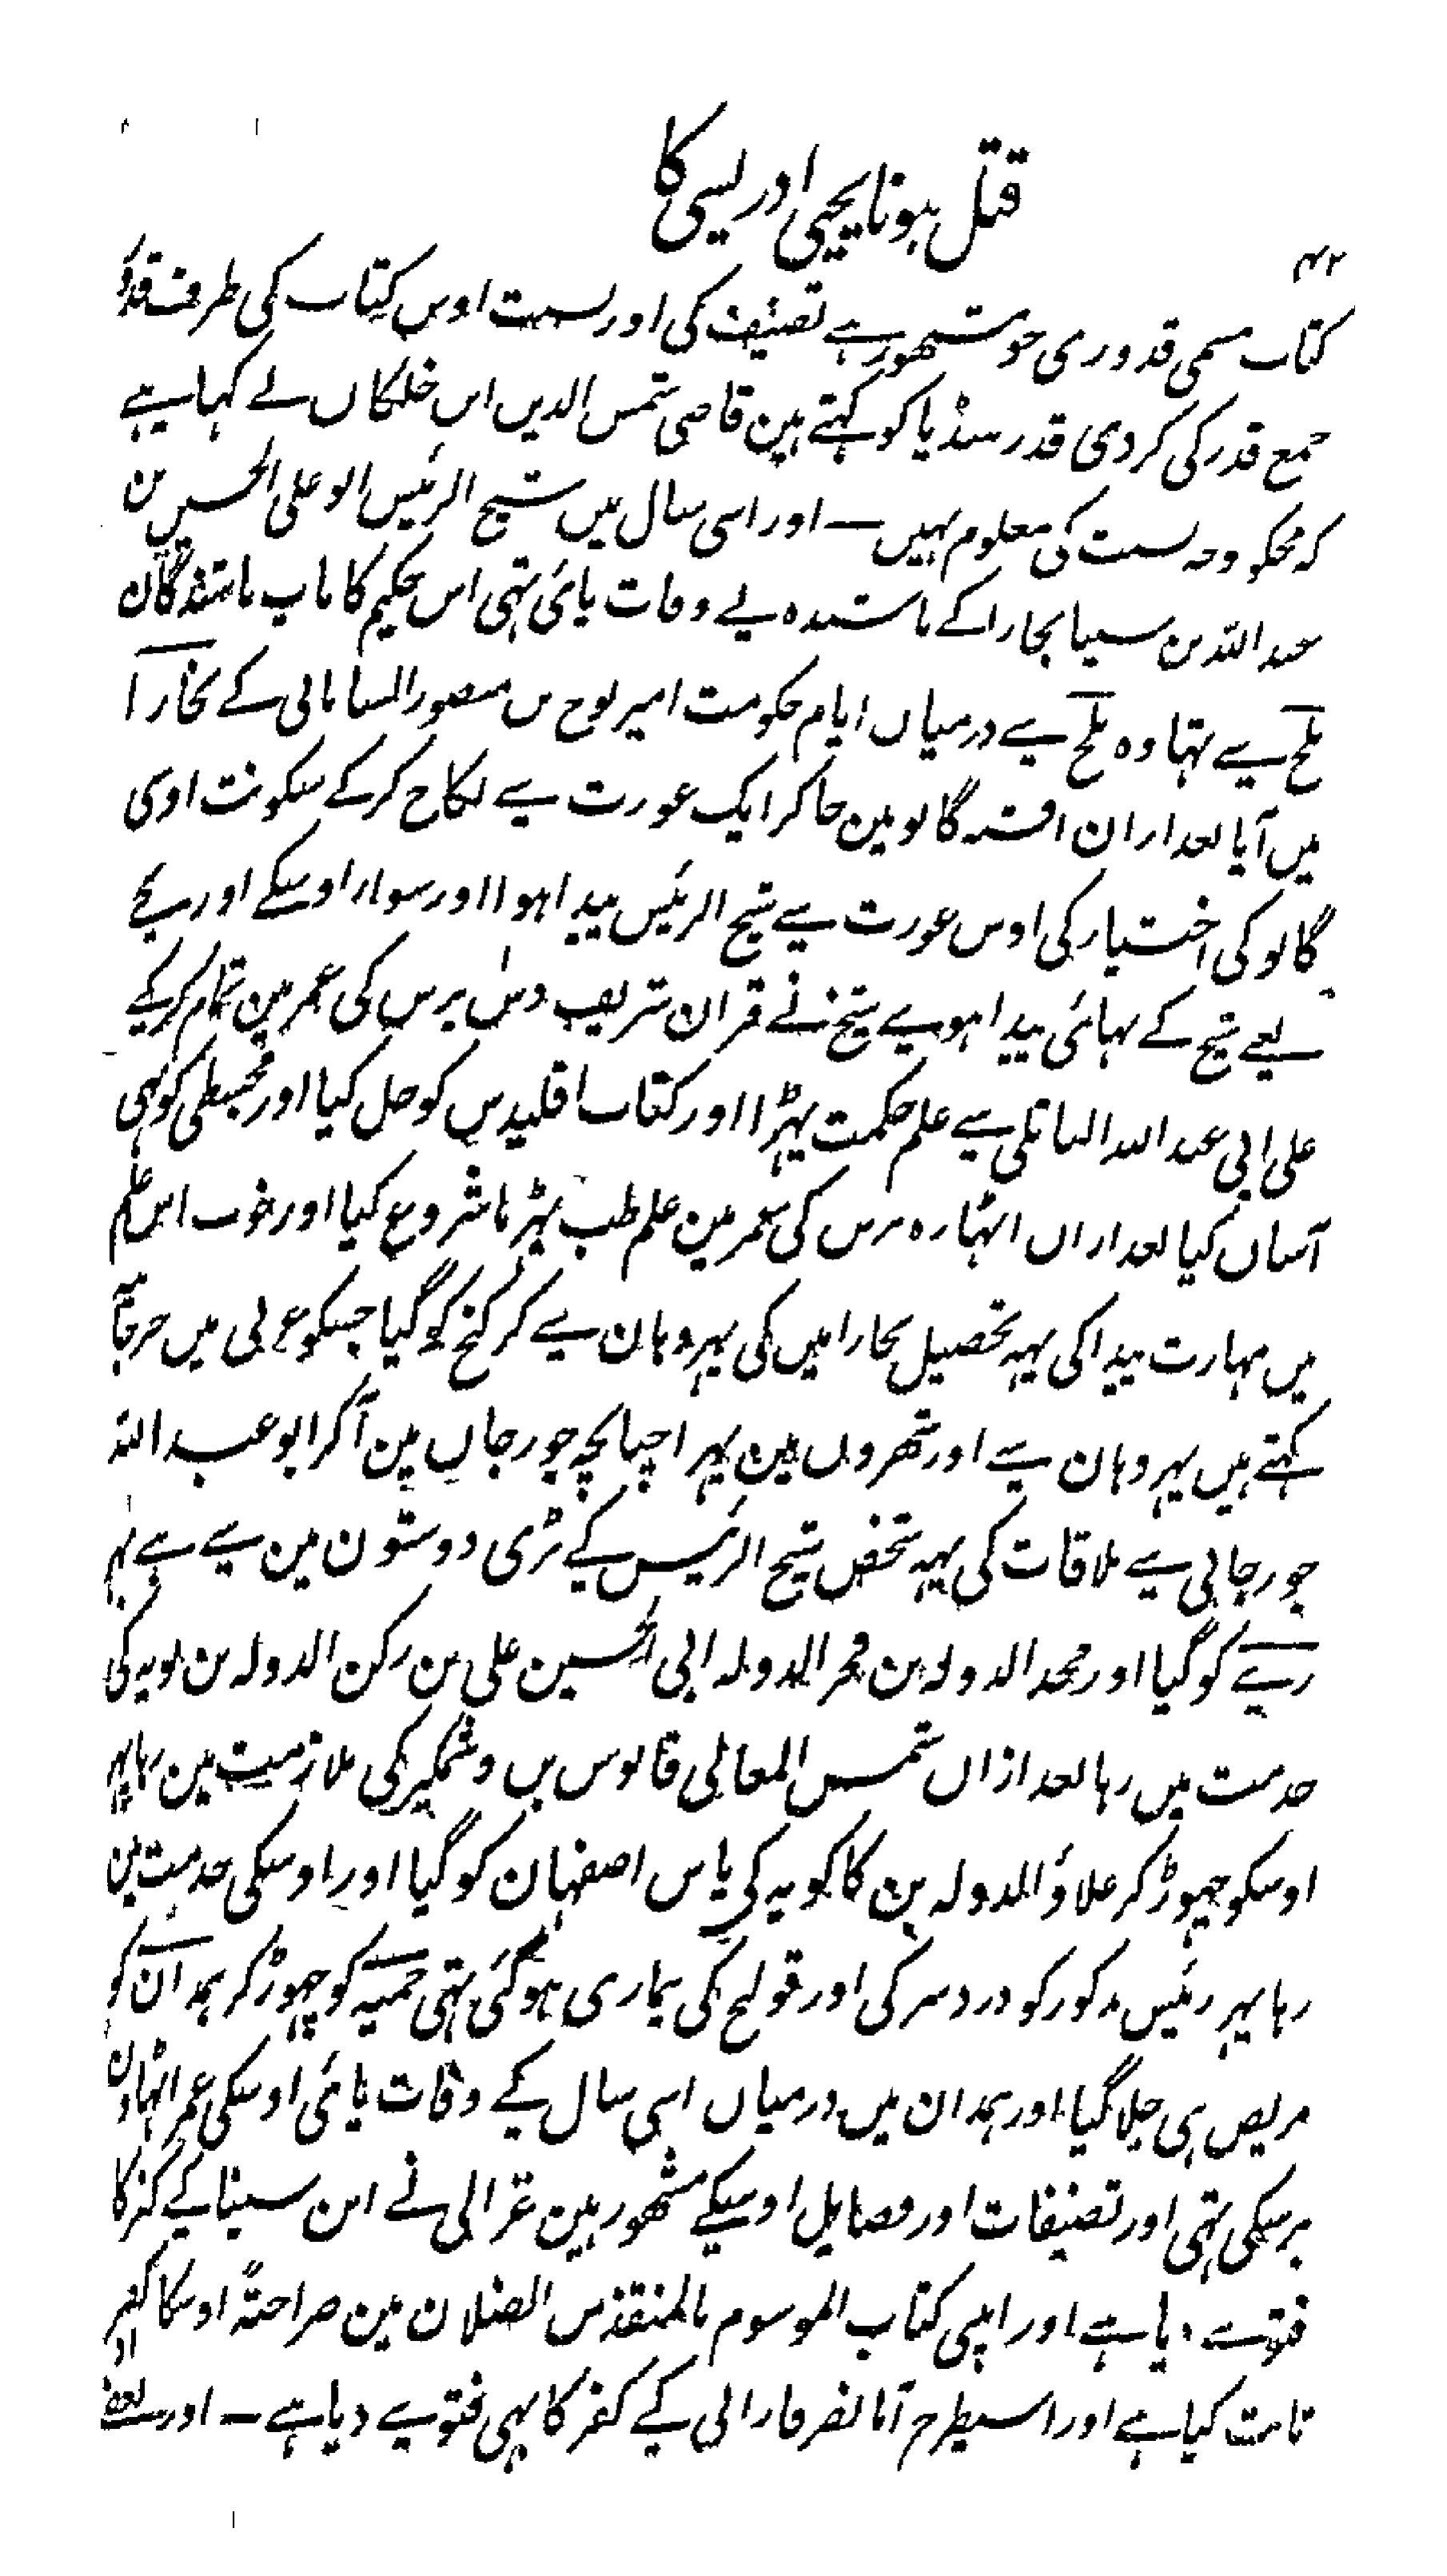 قتل ہونا یحیی ادریسی کا
۴۲
کتاب مسمی قدوری جو مشہور ہے تصنیف کی اور نسبت اوس کتاب کی طرف قدور
جمع قدر کی کردی قدر ہنڈیا کو کہتے ہین قاضی شمس الدین ابن خلکان نے کہا ہے
کہ مجکو وجہ نسبت کی معلوم نہیں ــ اور اسی سال میں شیخ الرئیس ابو علی الحسین بن
عبد اللہ بن سینا بخارا کے باشندہ نے وفات پائی تہی اس حکیم کا باپ باشندگان
بلخ سے تہا وہ بلخ سے درمیاں ایام حکومت امیر نوح بن منصور السامانی کے بخارا
میں آیا بعد ازان افشنہ گانو مین جاکر ایک عورت سے نکاح کر کے سکونت اوسی
گانو کی اختیار کی اوس عورت سے شیخ الرئیس پیدا ہوا اور سوار اوسکے اور بچے
یعنے شیخ کے بہائی پیدا ہوے شیخ نے قران شریف دس برس کی عمر مین تمام کر کے
علی ابی عبد اللہ الناتلی سے علم حکمت پہڑا اور کتاب اقلیدس کو حل کیا اور مجسطی کو بہی
آسان کیا بعد ازان اٹہارہ برس کی عمر مین علم طب پہڑنا شروع کیا اور خوب اس علم
میں مہارت پیدا کی یہہ تحصیل بخارا میں کی پہر وہان سے کرکنج کو گیا جسکو عربی میں جرجانیہ
کہتے ہیں پہر وہان سے اور شہروں مین پہرا چنانچہ جورجان مین آکر ابو عبد اللہ
جورجانی سے ملاقات کی یہہ شخص شیخ الرئیس کے بڑی دوستون مین سے ہے پہر
رے کو گیا اور مجد الدولہ بن فخر الدولہ ابی الحسین علی بن رکن الدولہ بن بویہ کی
خدمت میں رہا بعد ازاں شمس المعالی قابوس بن وشمگیر کی ملازمت مین رہا پہر
اوسکو چہوڑ کر علاؤ الدولہ بن کاکویہ کی پاس اصفہان کو گیا اور اوسکی خدمت مین
رہا پہر رئیس مذکور کو درد سر کی اور قولنج کی بیماری ہوگئی تہی حمیہ کو چہوڑ کر ہمدان کو
مریض ہی چلا گیا اور ہمدان میں درمیاں اسی سال کے وفات پائی اوسکی عمر اٹہاون
برسکی تہی اور تصنیفات اور فضایل اوسکے مشہور ہین غزالی نے ابن سینا کے کفر کا
فتوے دیا ہے اور اپنی کتاب الموسوم بالمنقذ من الضلان مین صراحتہً اوسکا کفر
ثابت کیا ہے اور اسیطرح ابا نصر فارابی کے کفر کا بہی فتوے دیا ہے ــ اور بعضے